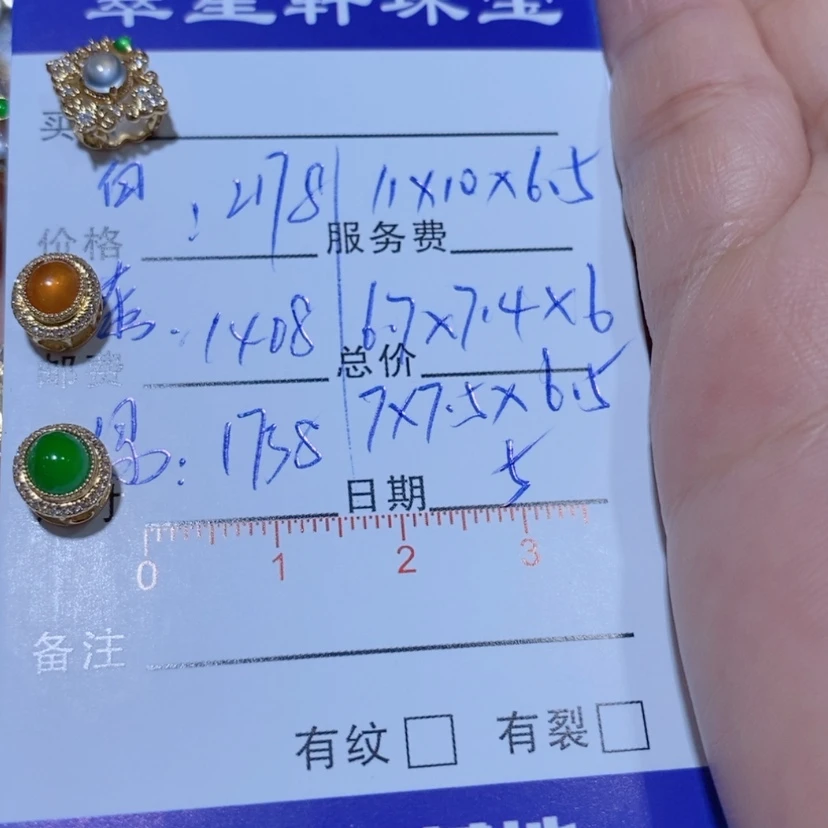 翠星轩珠宝
买
白：2178 11×10×6.5
价格 服务费
1408 6.7×7.4×6
邮费 总价
1738 7×7.5×6.5
5
日期
0 1 2 3
备注
有纹 有裂